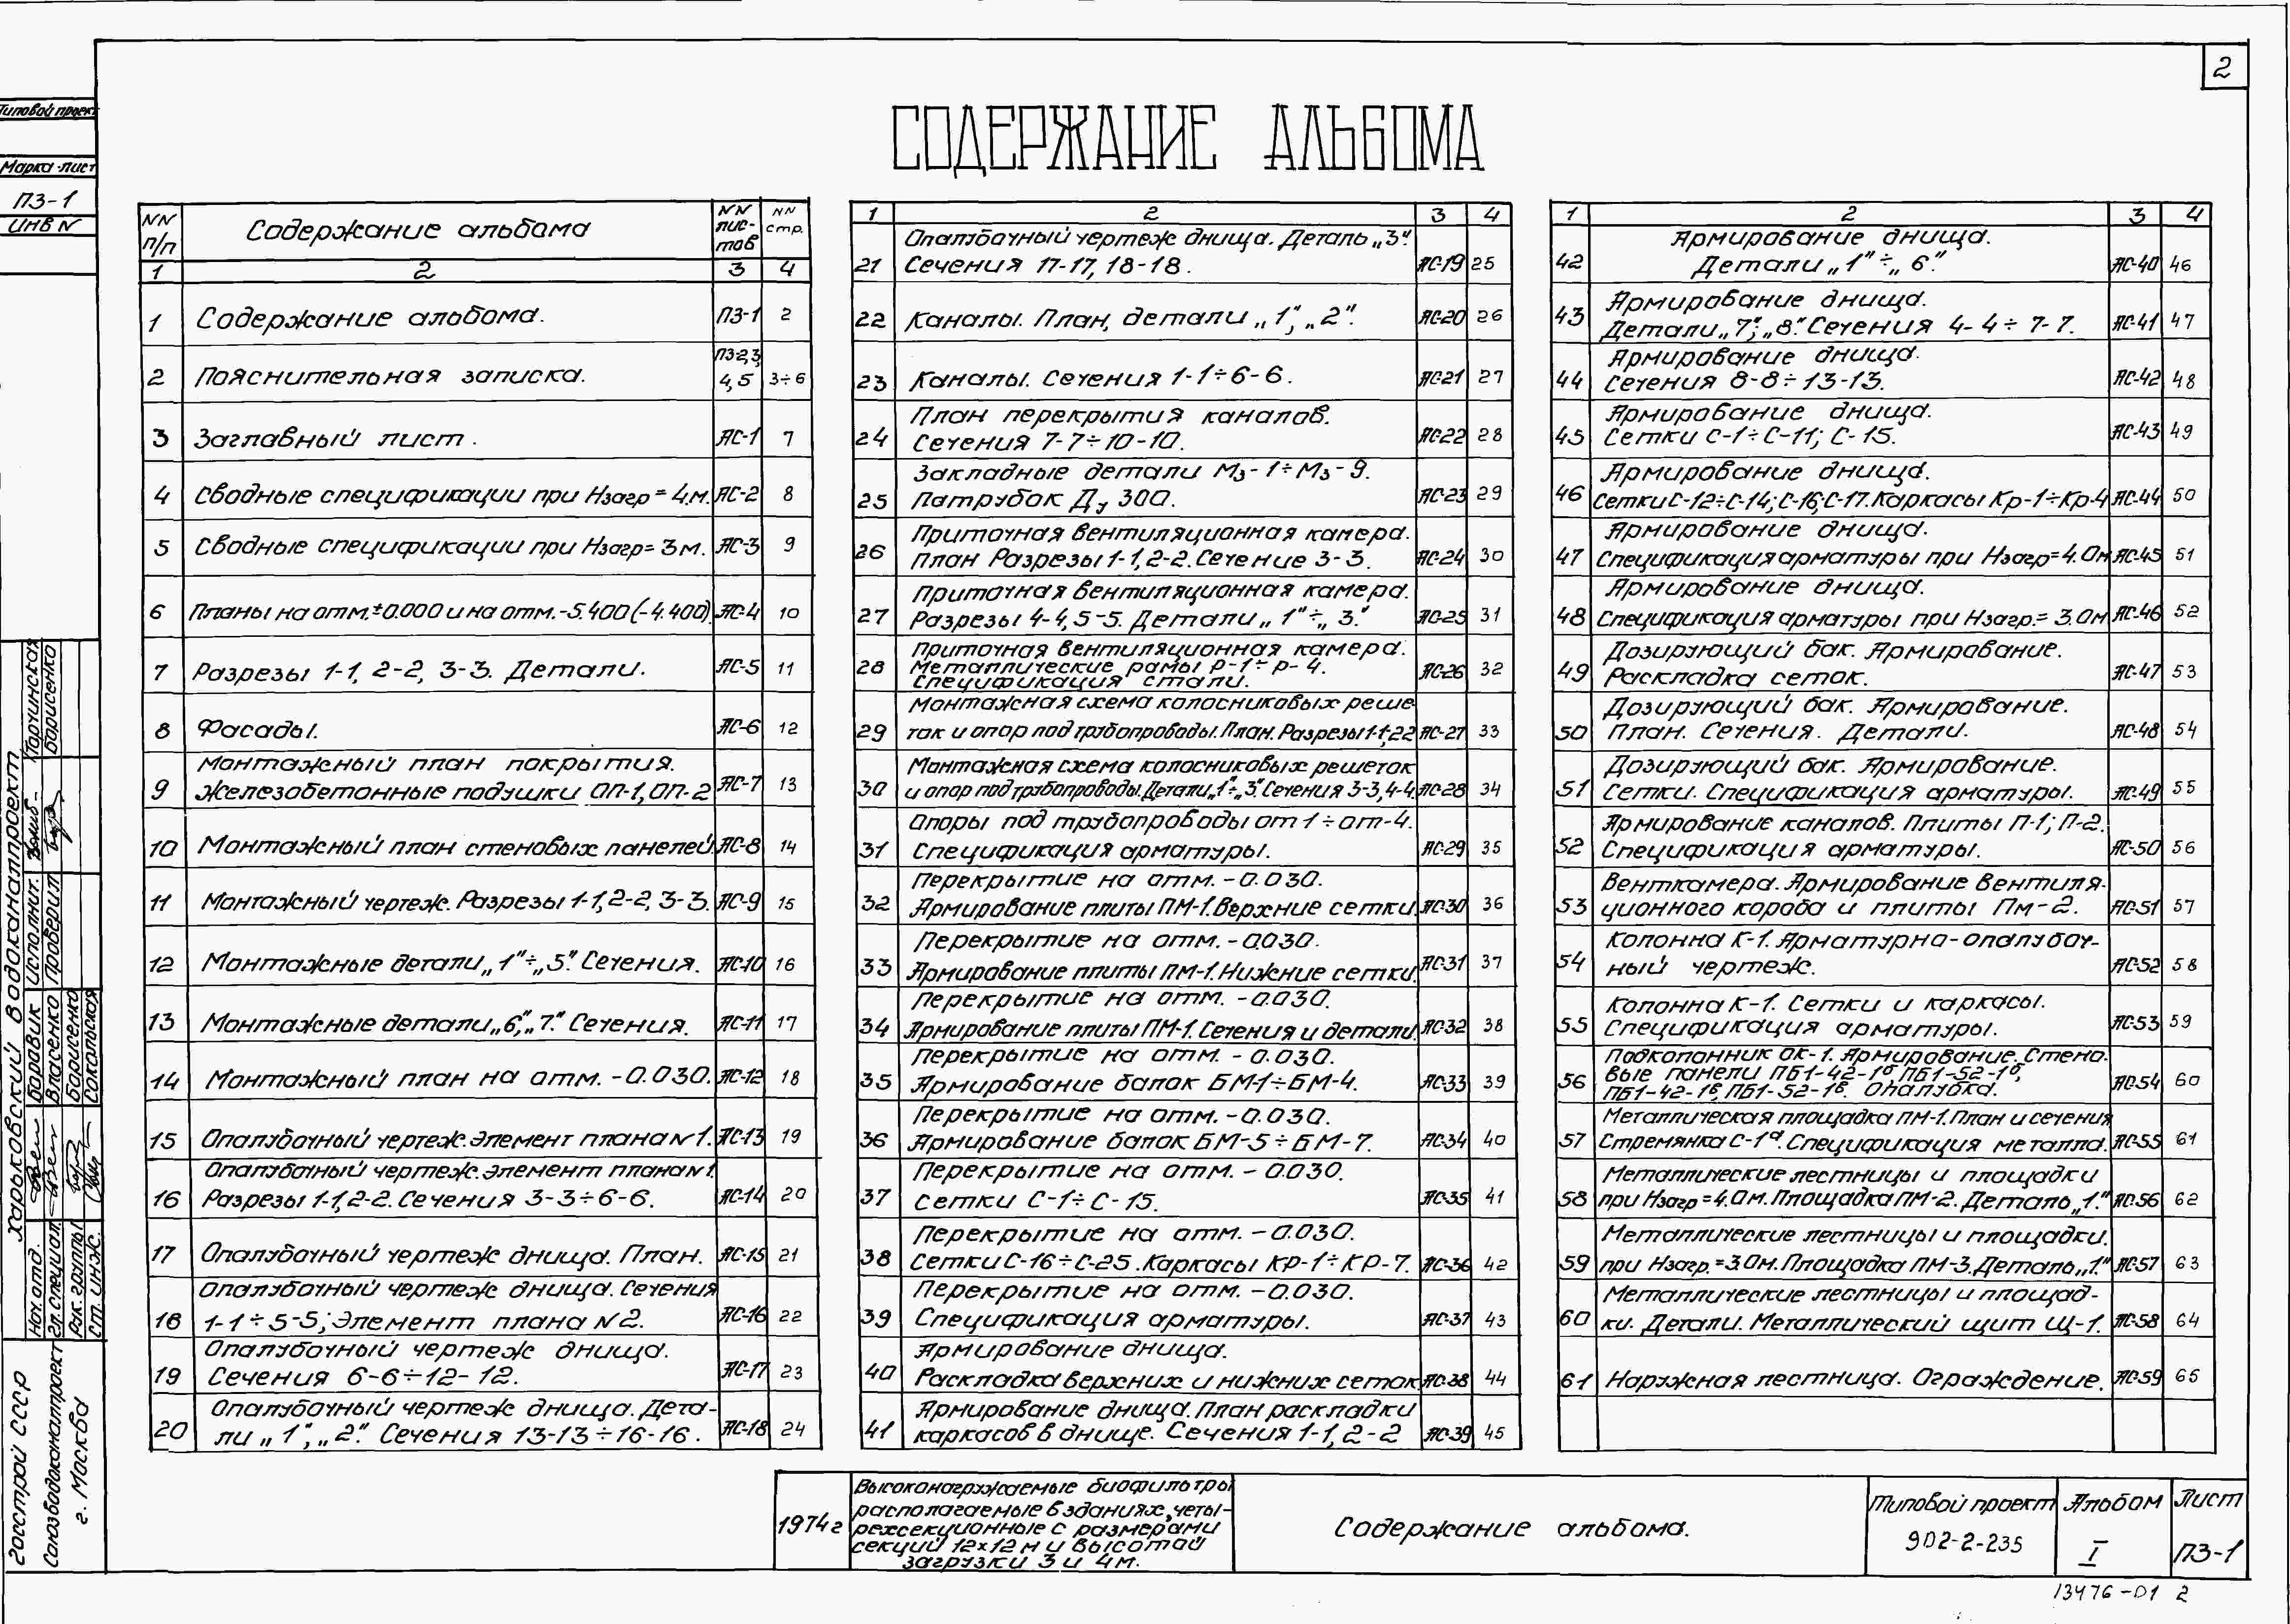 2
СОДЕРЖАНИЕ АЛЬБОМА
Типовой проект
Марка-лист
ПЗ-1
ИНВ N
NN п/п Содержание альбома NN листов NN стр.
1 2 3 4
1 Содержание альбома. ПЗ-1 2
2 Пояснительная записка. ПЗ-2,3,4,5 3÷6
3 Заглавный лист. АС-1 7
4 Сводные спецификации при Нзагр = 4м. АС-2 8
5 Сводные спецификации при Нзагр = 3м. АС-3 9
6 Планы на отм. ±0.000 и на отм. -5.400 (-4.400). АС-4 10
7 Разрезы 1-1, 2-2, 3-3. Детали. АС-5 11
8 Фасады. АС-6 12
9 Монтажный план покрытия.
Железобетонные подушки ОП-1, ОП-2 АС-7 13
10 Монтажный план стеновых панелей. АС-8 14
11 Монтажный чертеж. Разрезы 1-1, 2-2, 3-3. АС-9 15
12 Монтажные детали „1"÷„5". Сечения. АС-10 16
13 Монтажные детали „6", „7". Сечения. АС-11 17
14 Монтажный план на отм. -0.030. АС-12 18
15 Опалубочный чертеж. Элемент плана N1. АС-13 19
16 Опалубочный чертеж. Элемент плана N1.
Разрезы 1-1, 2-2. Сечения 3-3÷6-6. АС-14 20
17 Опалубочный чертеж днища. План. АС-15 21
18 Опалубочный чертеж днища. Сечения
1-1÷5-5; Элемент плана N2. АС-16 22
19 Опалубочный чертеж днища.
Сечения 6-6÷12-12. АС-17 23
20 Опалубочный чертеж днища. Дета-
ли „1", „2". Сечения 13-13÷16-16. АС-18 24
1 2 3 4
21 Опалубочный чертеж днища. Деталь „3".
Сечения 17-17, 18-18. АС-19 25
22 Каналы. План, детали „1", „2". АС-20 26
23 Каналы. Сечения 1-1÷6-6. АС-21 27
24 План перекрытия каналов.
Сечения 7-7÷10-10. АС-22 28
25 Закладные детали Мз-1÷Мз-9.
Патрубок Ду 300. АС-23 29
26 Приточная вентиляционная камера.
План Разрезы 1-1, 2-2. Сечение 3-3. АС-24 30
27 Приточная вентиляционная камера.
Разрезы 4-4, 5-5. Детали „1"÷„3". АС-25 31
28 Приточная вентиляционная камера.
Металлические рамы Р-1÷Р-4.
Спецификация стали. АС-26 32
29 Монтажная схема колосниковых реше
ток и опор под трубопроводы. План. Разрезы 1-1; 2 2 АС-27 33
30 Монтажная схема колосниковых решеток
и опор под трубопроводы. Детали „1"÷„3". Сечения 3-3, 4-4. АС-28 34
31 Опоры под трубопроводы от 1÷от-4.
Спецификация арматуры. АС-29 35
32 Перекрытие на отм. -0.030.
Армирование плиты ПМ-1. Верхние сетки. АС-30 36
33 Перекрытие на отм. -0.030.
Армирование плиты ПМ-1. Нижние сетки. АС-31 37
34 Перекрытие на отм. -0.030.
Армирование плиты ПМ-1. Сечения и детали. АС-32 38
35 Перекрытие на отм. -0.030.
Армирование балок БМ-1÷БМ-4. АС-33 39
36 Перекрытие на отм. -0.030.
Армирование балок БМ-5÷БМ-7. АС-34 40
37 Перекрытие на отм. -0.030.
Сетки С-1÷С-15. АС-35 41
38 Перекрытие на отм. -0.030.
Сетки С-16÷С-25. Каркасы КР-1÷КР-7. АС-36 42
39 Перекрытие на отм. -0.030.
Спецификация арматуры. АС-37 43
40 Армирование днища.
Раскладка верхних и нижних сеток. АС-38 44
41 Армирование днища. План раскладки
каркасов в днище. Сечения 1-1, 2-2 АС-39 45
1 2 3 4
42 Армирование днища.
Детали „1"÷„6". АС-40 46
43 Армирование днища.
Детали „7"; „8". Сечения 4-4÷7-7. АС-41 47
44 Армирование днища.
Сечения 8-8÷13-13. АС-42 48
45 Армирование днища.
Сетки С-1÷С-11; С-15. АС-43 49
46 Армирование днища.
Сетки С-12÷С-14; С-16; С-17. Каркасы Кр-1÷Кр-4 АС-44 50
47 Армирование днища.
Спецификация арматуры при Нзагр = 4.0м АС-45 51
48 Армирование днища.
Спецификация арматуры при Нзагр. = 3.0м АС-46 52
49 Дозирующий бак. Армирование.
Раскладка сеток. АС-47 53
50 Дозирующий бак. Армирование.
План. Сечения. Детали. АС-48 54
51 Дозирующий бак. Армирование.
Сетки. Спецификация арматуры. АС-49 55
52 Армирование каналов. Плиты П-1; П-2.
Спецификация арматуры. АС-50 56
53 Венткамера. Армирование вентиля-
ционного короба и плиты Пм-2. АС-51 57
54 Колонна К-1. Арматурно-опалубоч-
ный чертеж. АС-52 58
55 Колонна К-1. Сетки и каркасы.
Спецификация арматуры. АС-53 59
56 Подколонник ОК-1. Армирование. Стено-
вые панели ПБ1-42-1б, ПБ1-52-1б,
ПБ1-42-1в, ПБ1-52-1в. Опалубка. АС-54 60
57 Металлическая площадка ПМ-1. План и сечения
Стремянка С-1а. Спецификация металла. АС-55 61
58 Металлические лестницы и площадки
при Нзагр = 4.0м. Площадка ПМ-2. Деталь „1". АС-56 62
59 Металлические лестницы и площадки.
при Нзагр. = 3.0м. Площадка ПМ-3. Деталь „1". АС-57 63
60 Металлические лестницы и площад-
ки. Детали. Металлический щит Щ-1. АС-58 64
61 Наружная лестница. Ограждение. АС-59 65
Госстрой СССР
Союзводоканалпроект
г. Москва
Харьковский Водоканалпроект
Нач. отд. Боравик
Гл. специал. Власенко
Рук. группы Борисенко
Ст. инж. Сокольская
Исполнит.
Проверил Борисенко
1974г
Высоконагружаемые биофильтры
располагаемые в зданиях, четы-
рехсекционные с размерами
секций 12×12м и высотой
загрузки 3 и 4м.
Содержание альбома.
Типовой проект
902-2-235
Альбом
I
Лист
ПЗ-1
13476-01 2